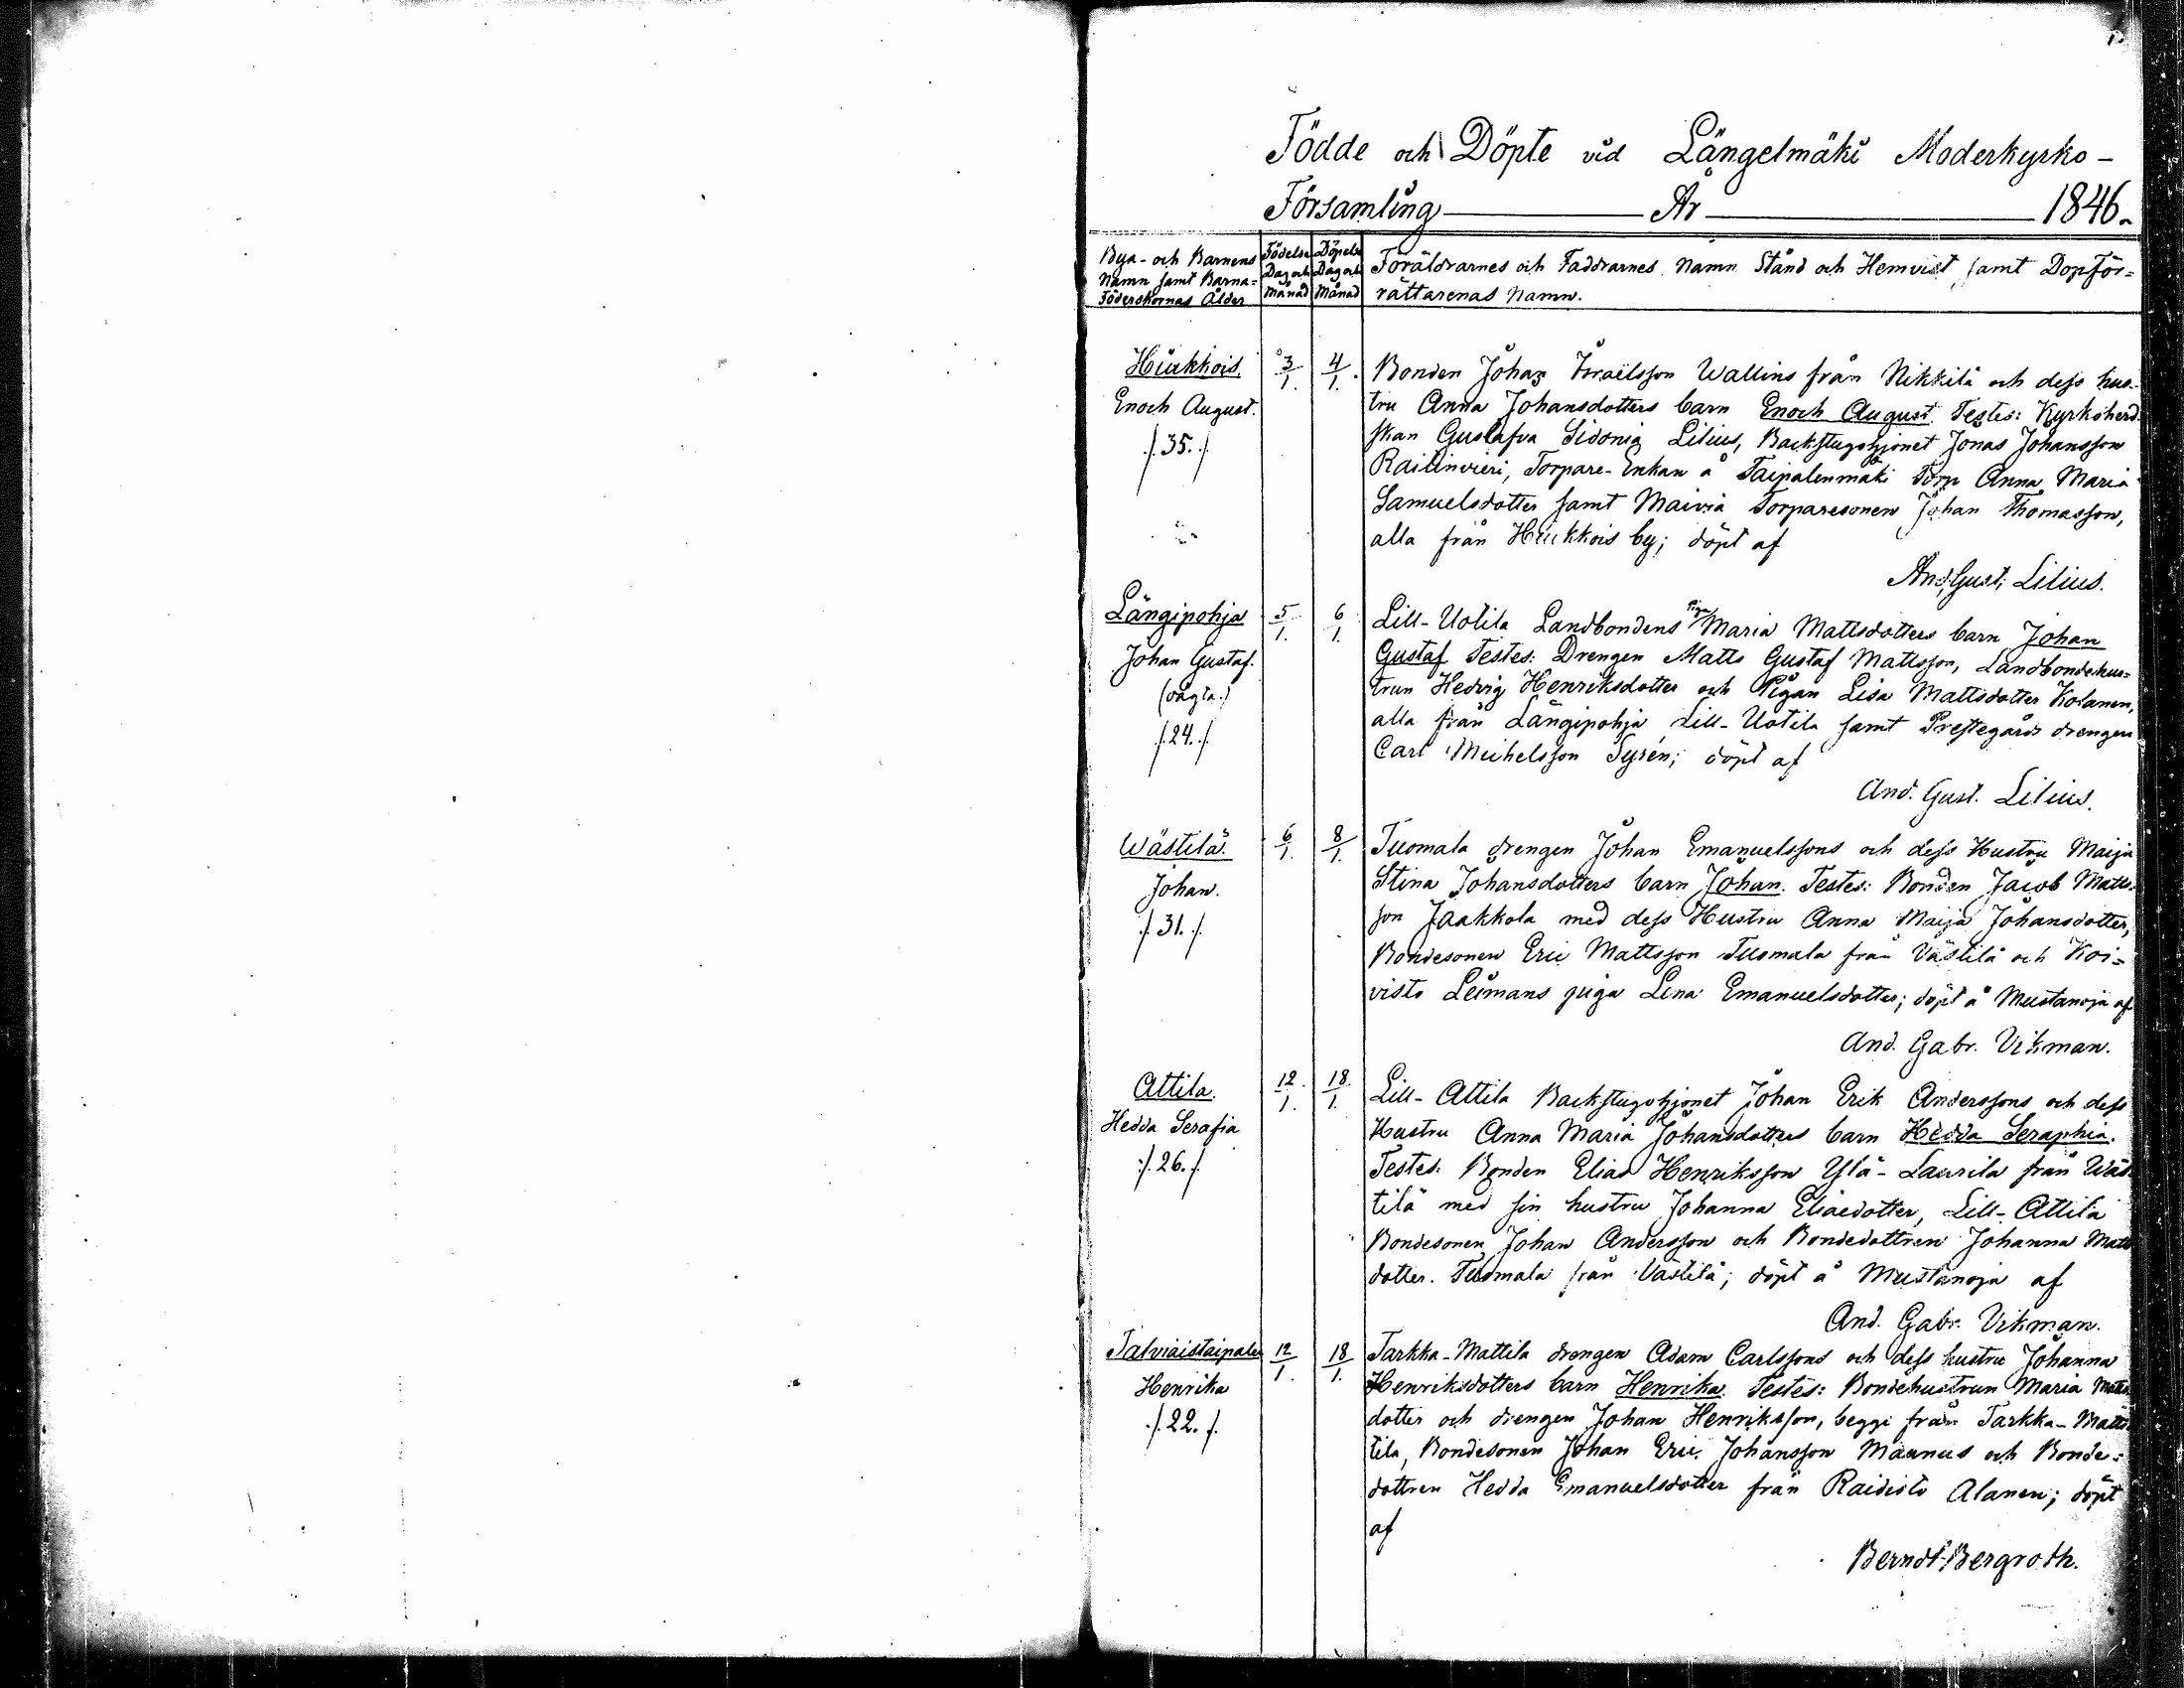 Födde och Döpte vid Längelmäki Moderkyrko-
Församling År 1846.
Bya- och Barnens
Namn samt Barna=
Föderskornas Ålder
Födelse
Dag och
Månad
Döpelse
Dag och
Månad
Föräldrarnes och Faddrarnes Namn Stånd och Hemvist samt Dopför=
rättarenas Namn.
Hiukkois.
Enoch August.
/.35./
3/1.
4/1.
Bonden Johan Israëlsson Wallins från Nikkilä och dess hus-
tru Anna Johansdotters barn Enoch August. Testes: Kyrkoherd
skan Gustafva Sidonia Lilius, Backstugohjonet Jonas Johansson
Raitinvieri, Torpare-Enkan å Taipalenmäki Torp Anna Maria
Samuelsdotter samt Maivia Torparesonen Johan Thomasson,
alla från Hiukkois by; döpt af
And. Gust. Lilius.
Längipohja
Johan Gustaf.
(oägta.)
/.24./
5/1.
6/1.
Lill-Uotila Landbondens Piga Maria Mattsdotters barn Johan
Gustaf Testes: Drengen Matts Gustaf Mattsson, Landbondehus=
trun Hedvig Henriksdotter och Pigan Lisa Mattsdotter Kokanen,
alla från Längipohja Lill-Uotila samt Prestegårds drengen
Carl Michelsson Syrén; döpt af
And. Gust. Lilius.
Wästilä.
Johan.
/.31./
6/1.
8/1.
Tuomala drengen Johan Emanuelssons och dess Hustru Maija
Stina Johansdotters barn Johan. Testes: Bonden Jacob Matts-
son Jaakkola med dess Hustru Anna Maija Johansdotter,
Bondesonen Eric Mattsson Tuomala från Västilä och Koi=
visto Leimans piga Lena Emanuelsdotter; döpt å Mustanoja af
And. Gabr. Vikman.
Attila.
Hedda Serafia
/.26./
12/1.
18/1.
Lill-Attila Backstugohjonet Johan Erik Anderssons och dess
Hustru Anna Maria Johansdotters barn Hedda Seraphia.
Testes: Bonden Elias Henriksson Ylä-Laurila från Wäs-
tilä med sin hustru Johanna Eliaedotter, Lill-Attila
Bondesonen Johan Andersson och Bondedottren Johanna Matts
dotter Tuomala från Västilä; döpt å Mustanoja af
And. Gabr. Vikman.
Talviaistaipale
Henrika
/.22./
12/1.
18/1.
Tarkka-Mattila drengen Adam Carlssons och dess hustru Johanna
Henriksdotters barn Henrika. Testes: Bondehustrun Maria Matts
dotter och drengen Johan Henriksson, begge från Tarkka-Matt-
tila, Bondesonen Johan Eric Johansson Maunus och Bonde=
dottren Hedda Emanuelsdotter från Raidisto Alanen; döpt
af
Berndt Bergroth.